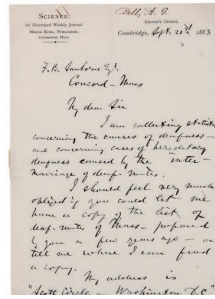 Bell, A. G.
SCIENCE:
An Illustrated Weekly Journal
MOSES KING, PUBLISHER.
CAMBRIDGE, MASS.
EDITOR'S OFFICE,
Cambridge, Sept. 1883
F. B. Sanborn Esq.
Concord - Mass
My dear Sir
I am collecting statistics
concerning the causes of deafness —
and concerning cases of hereditary
deafness caused by the inter-
marriage of deaf-mutes.
I should feel very much
obliged if you could let me
have a copy of the list of
deaf-mutes of Mass - prepared
by you a few years ago - or
tell me where I can find
a copy.
My address is
"Scott Circle - Washington D.C."